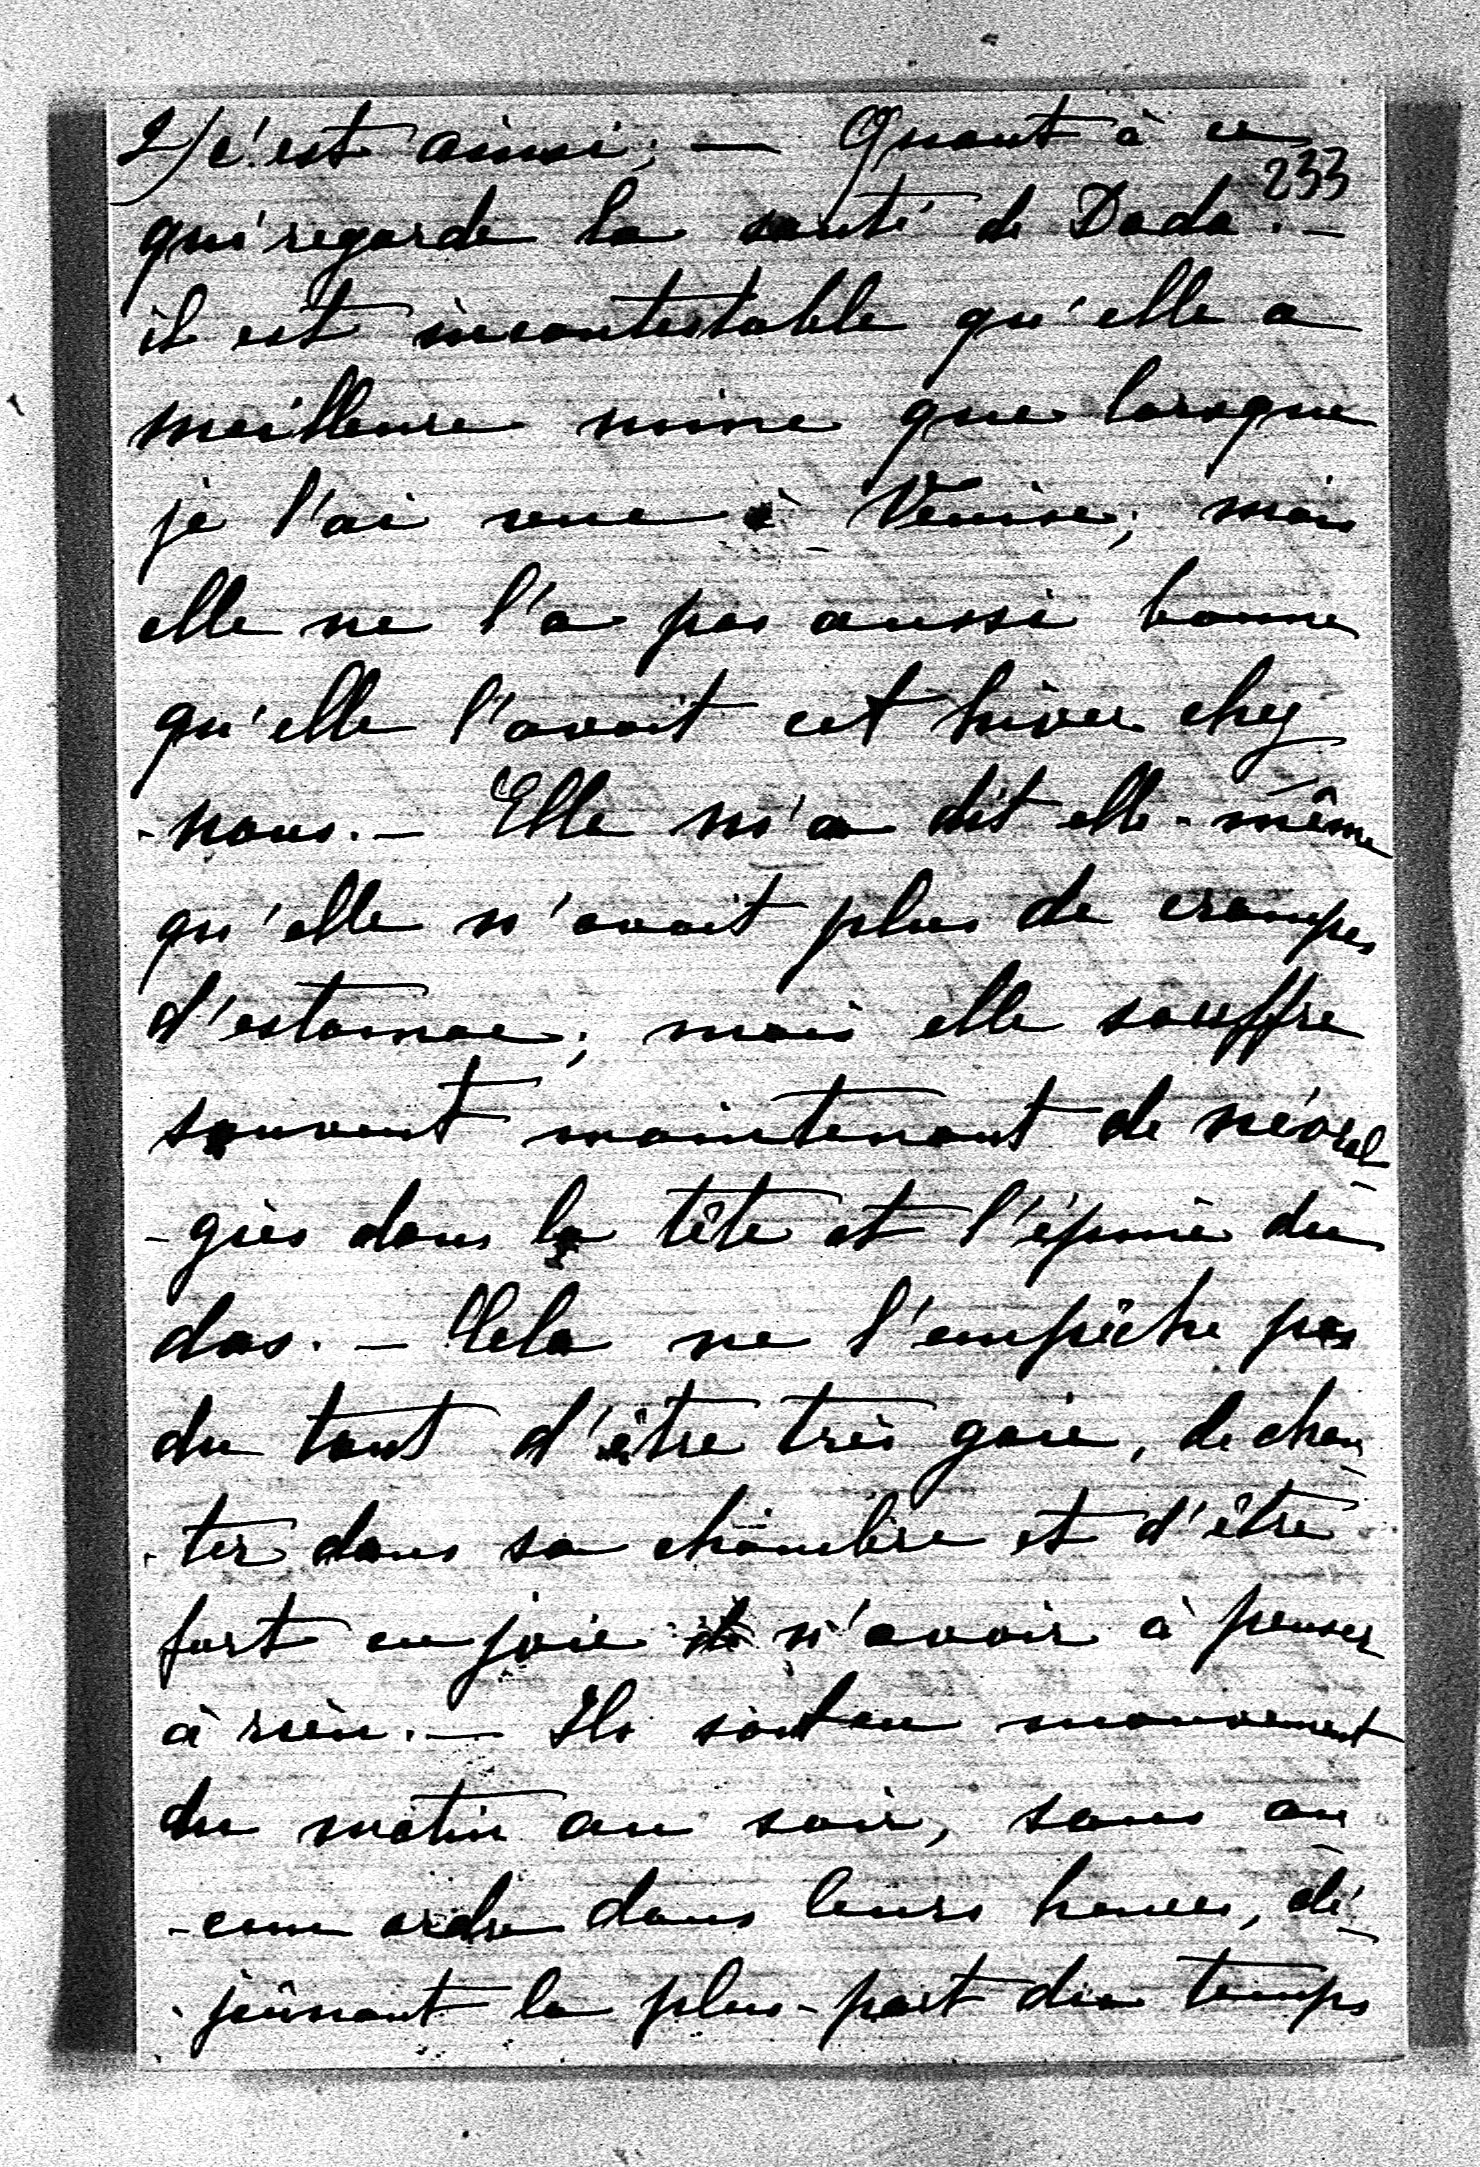 2/ c'est ainsi; — Quant à ce
233
qui regarde la santé de Dada. —
il est incontestable qu'elle a
meilleure mine que lorsque
je l'ai vue à Venise; mais
elle ne l'a pas aussi bonne
qu'elle l'avait cet hiver chez
-nous. — Elle m'a dit elle-même
qu'elle n'avait plus de crampes
d'estomac; mais elle souffre
souvent maintenant de névral-
-gies dans la tête et l'épine du
dos. — Cela ne l'empêche pas
du tout d'être très gaie, de chan-
-ter dans sa chambre et d'être
fort en joie de n'avoir à penser
à rien. — Ils sont en mouvement
du matin au soir, sans au-
-cun ordre dans leurs heures, dé-
-jeûnant la plus-part du temps